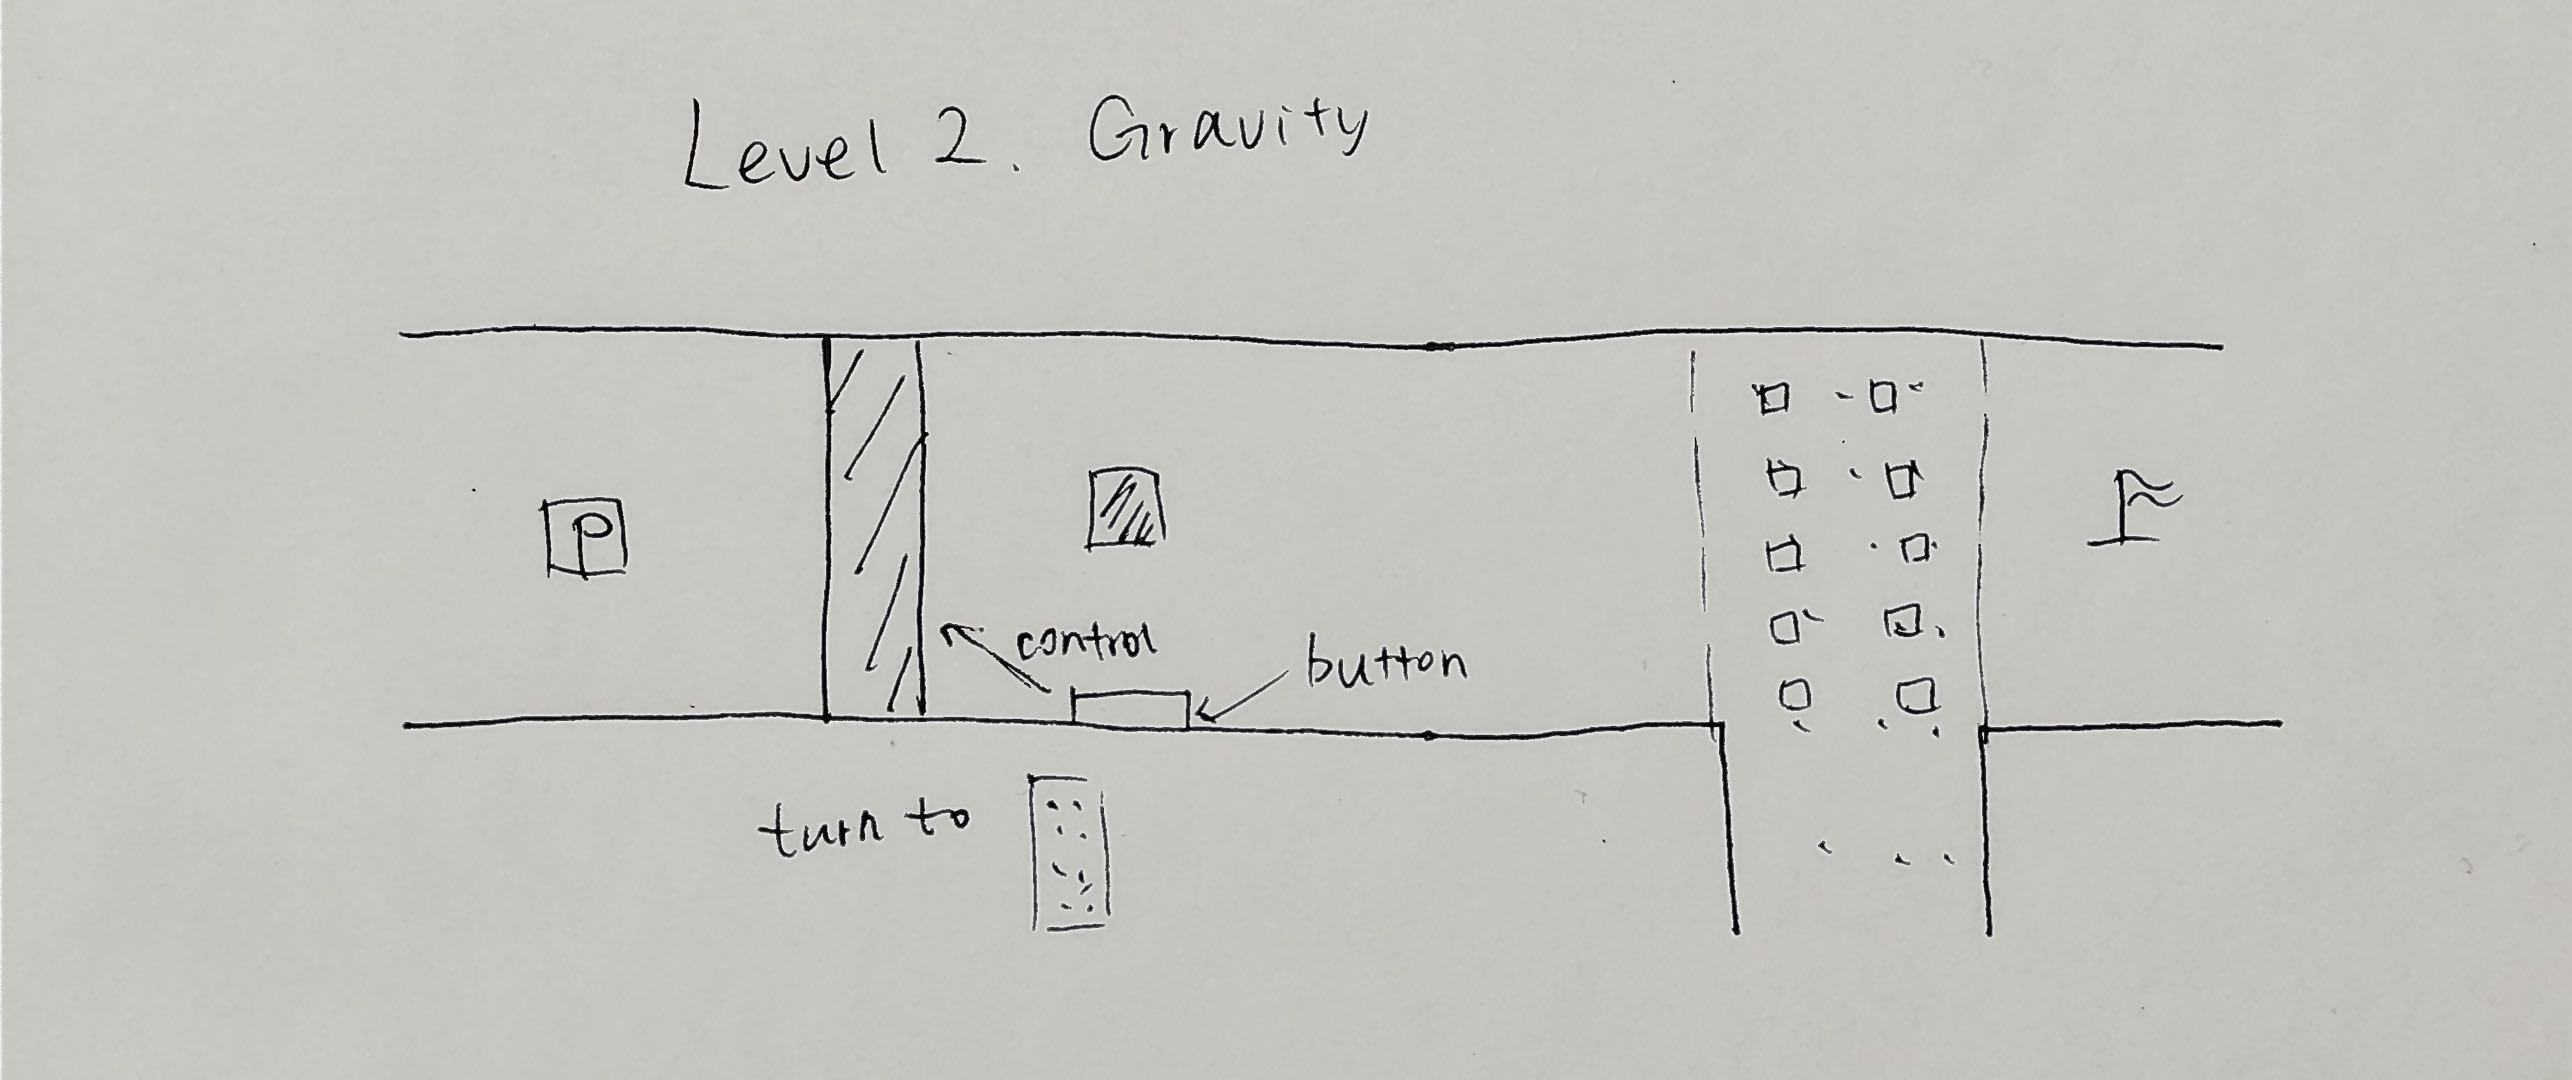 Level 2. Gravity
P
control
button
turn to